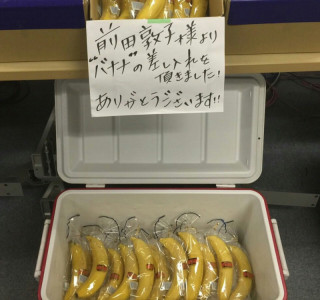 前田敦子様より
"バナナ"の差し入れを
頂きました!
ありがとうございます!!